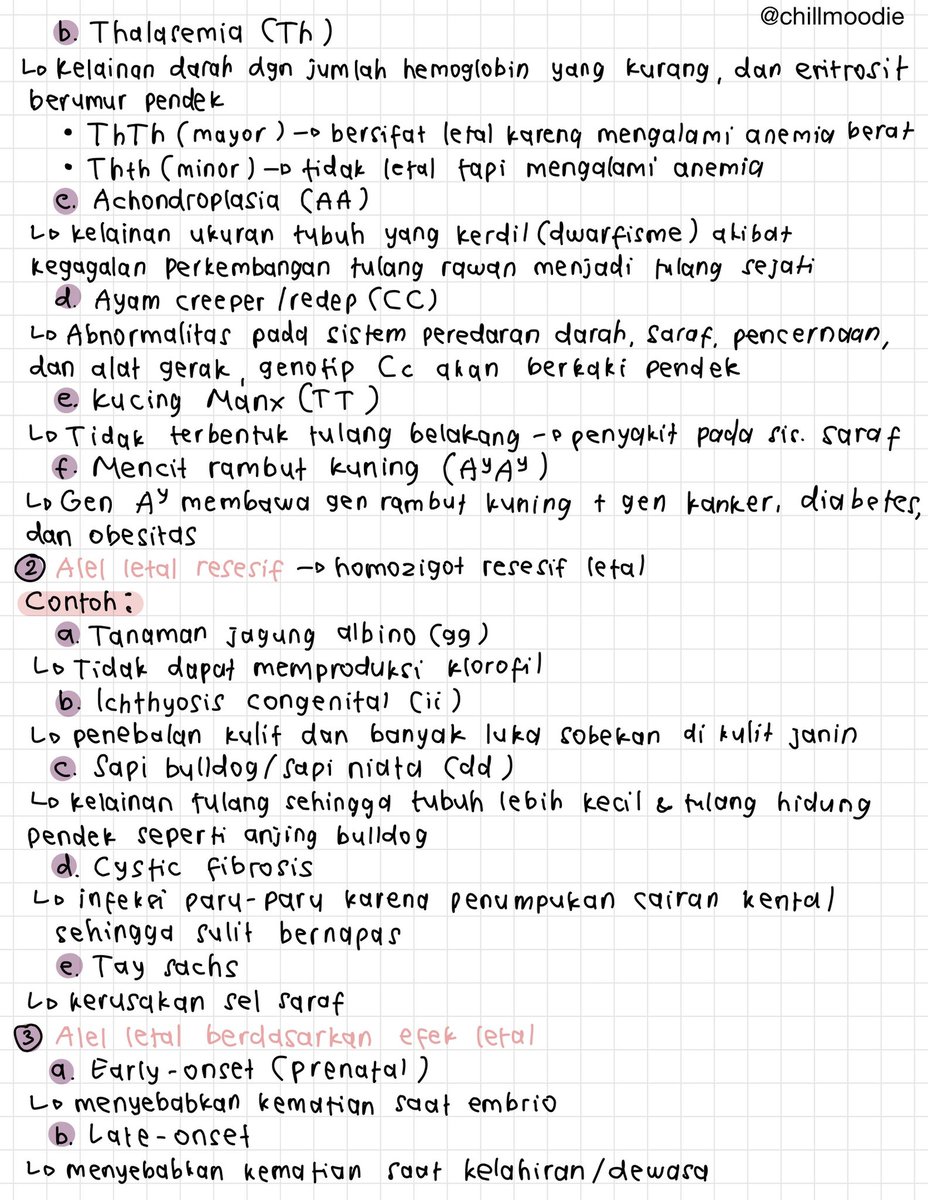 @chillmoodie
b. Thalasemia (Th)
↳ kelainan darah dgn jumlah hemoglobin yang kurang, dan eritrosit
berumur pendek
• ThTh (mayor) → bersifat letal karena mengalami anemia berat
• Thth (minor) → tidak letal tapi mengalami anemia
c. Achondroplasia (AA)
↳ kelainan ukuran tubuh yang kerdil (dwarfisme) akibat
kegagalan perkembangan tulang rawan menjadi tulang sejati
d. Ayam creeper/redep (CC)
↳ Abnormalitas pada sistem peredaran darah, saraf, pencernaan,
dan alat gerak, genotip Cc akan berkaki pendek
e. kucing Manx (TT)
↳ Tidak terbentuk tulang belakang → penyakit pada sis. saraf
f. Mencit rambut kuning (AʸAʸ)
↳ Gen Aʸ membawa gen rambut kuning + gen kanker, diabetes,
dan obesitas
2 Alel letal resesif → homozigot resesif letal
Contoh:
a. Tanaman jagung albino (gg)
↳ Tidak dapat memproduksi klorofil
b. Ichthyosis congenital (ii)
↳ penebalan kulit dan banyak luka sobekan di kulit janin
c. Sapi bulldog/sapi niata (dd)
↳ kelainan tulang sehingga tubuh lebih kecil & tulang hidung
pendek seperti anjing bulldog
d. Cystic fibrosis
↳ infeksi paru-paru karena penumpukan cairan kental
sehingga sulit bernapas
e. Tay sachs
↳ kerusakan sel saraf
3 Alel letal berdasarkan efek letal
a. Early-onset (prenatal)
↳ menyebabkan kematian saat embrio
b. Late-onset
↳ menyebabkan kematian saat kelahiran/dewasa